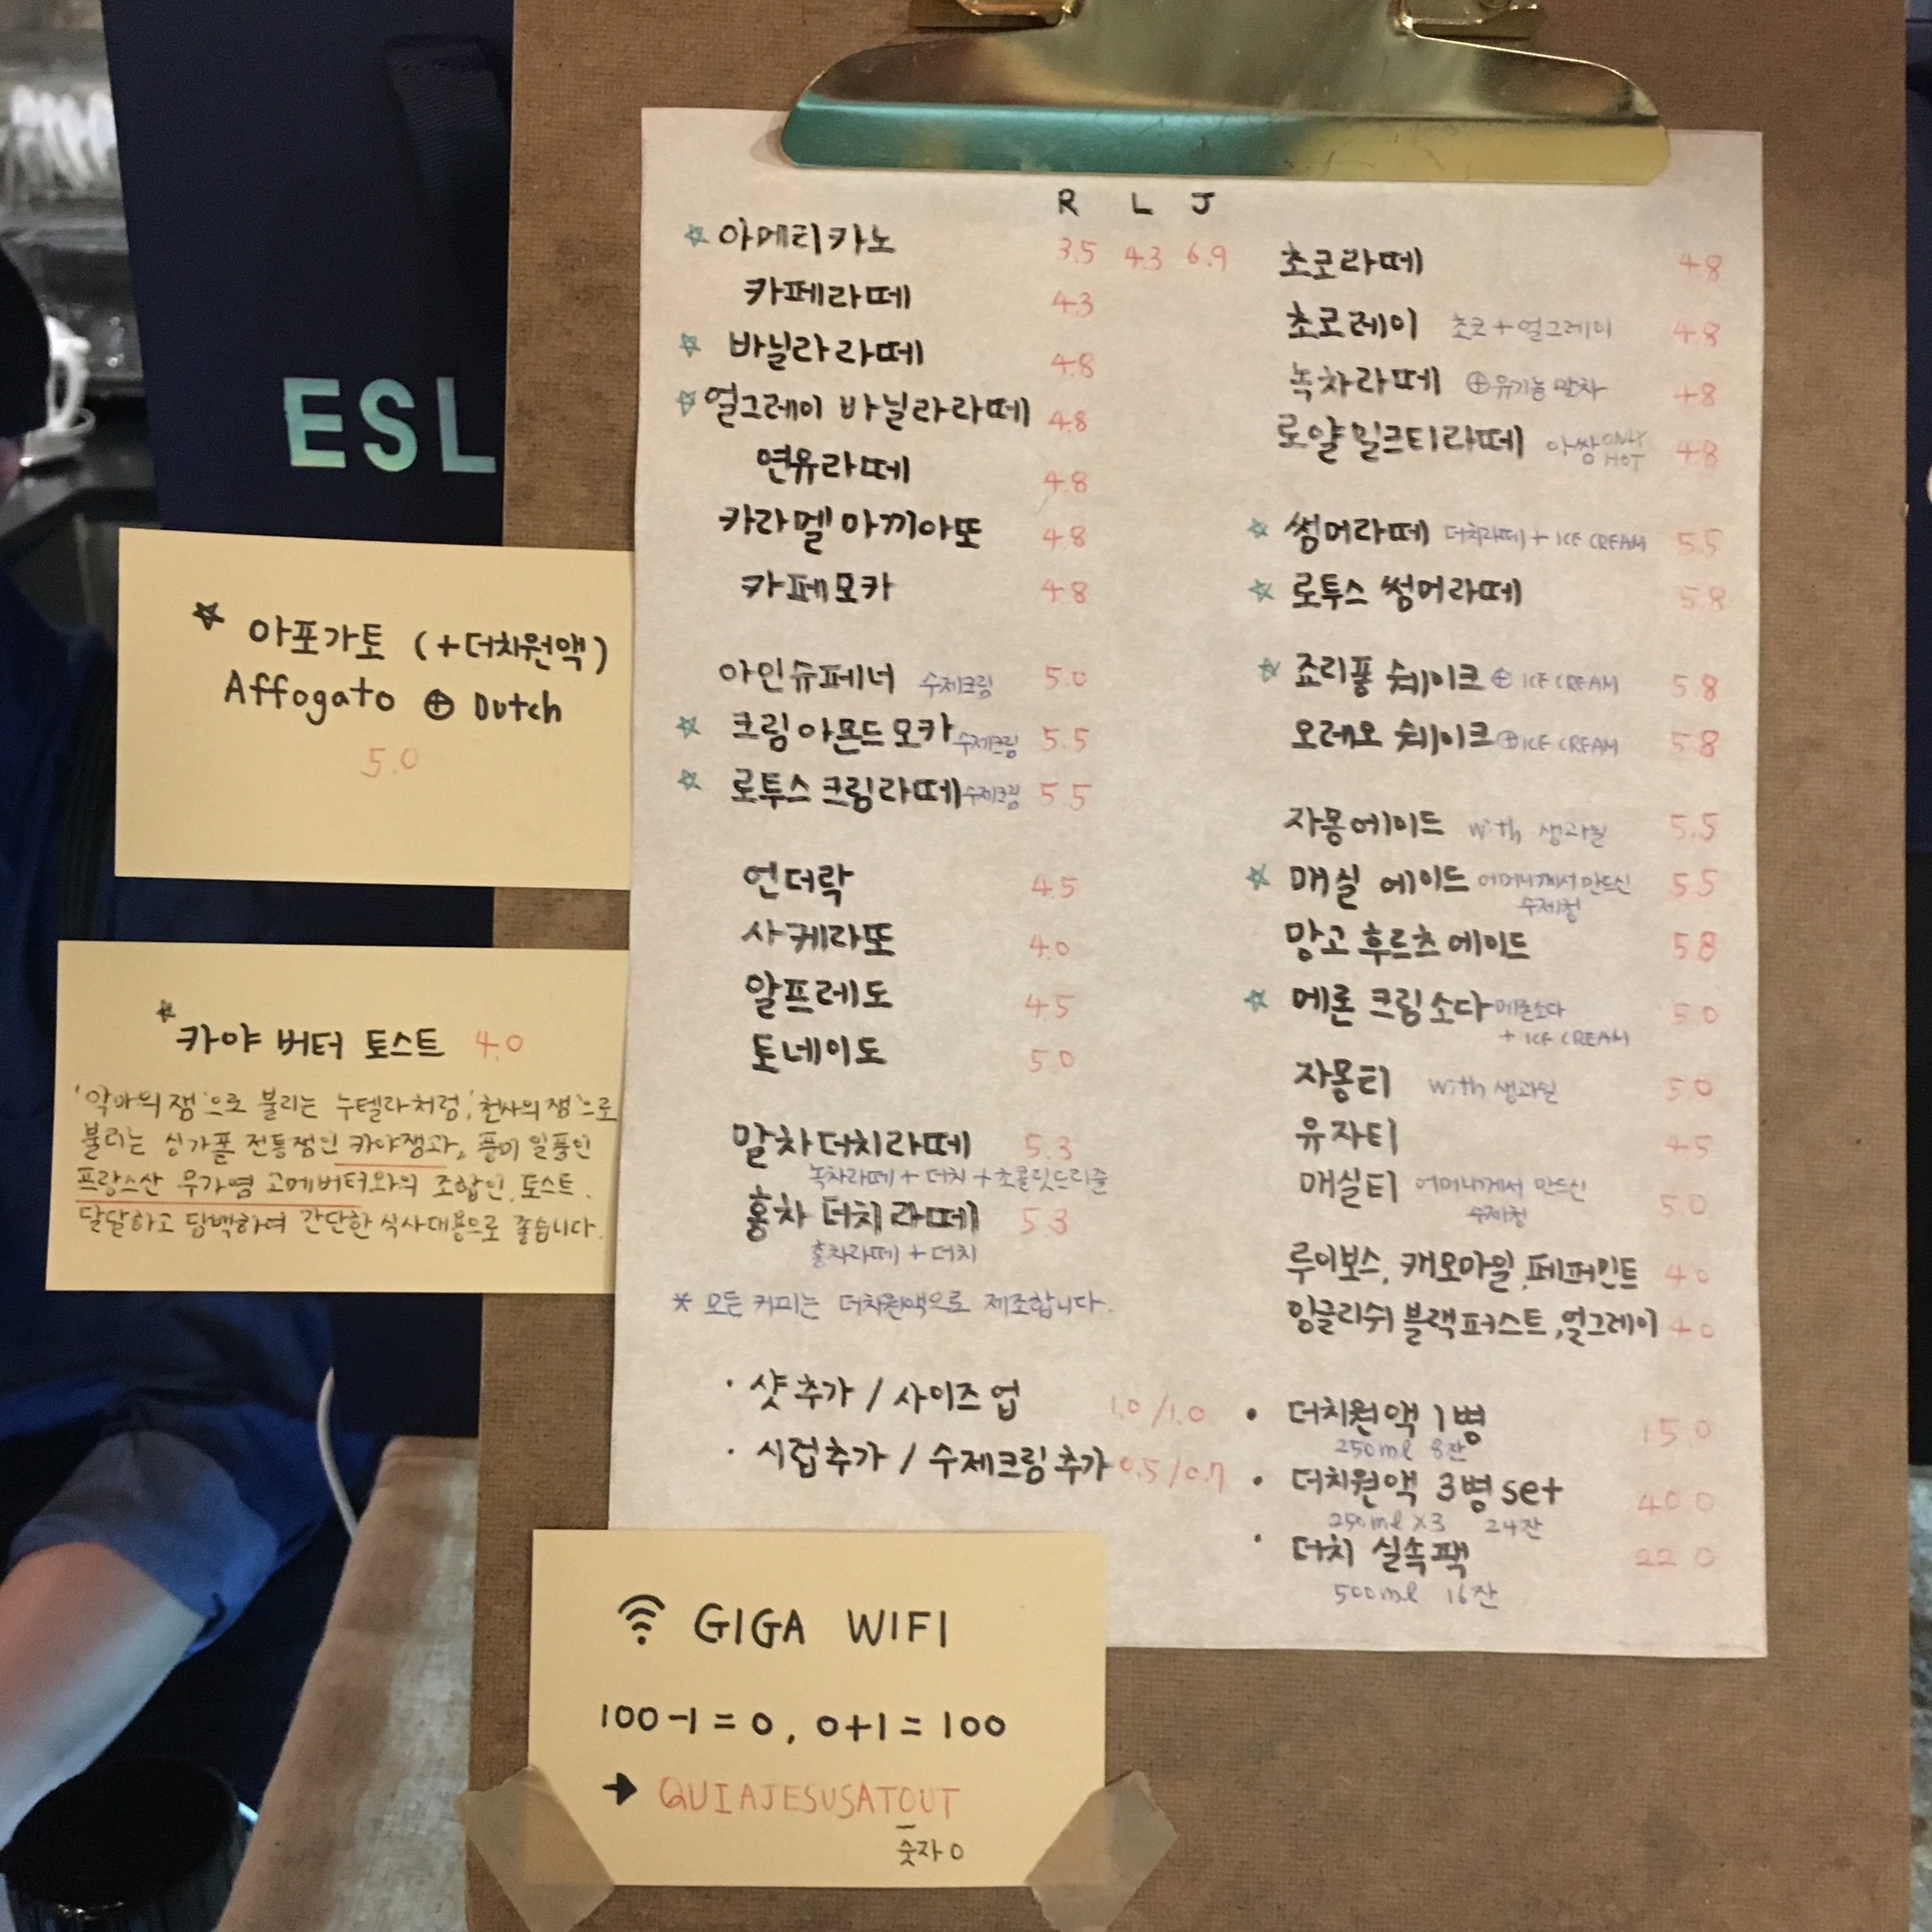 ESL
★ 아포가토 (+더치원액)
Affogato ⊕ Dutch
5.0
★ 카야 버터 토스트 4.0
'악마의 잼'으로 불리는 누텔라처럼, '천사의 잼'으로
불리는 싱가폴 전통잼인 카야잼과, 풍미 일품인
프랑스산 무가염 고메버터와의 조합인 토스트.
달달하고 담백하여 간단한 식사대용으로 좋습니다.
R L J
☆ 아메리카노 3.5 4.3 6.9
카페라떼 4.3
☆ 바닐라 라떼 4.8
☆ 얼그레이 바닐라라떼 4.8
연유라떼 4.8
카라멜 마끼아또 4.8
카페모카 4.8
아인슈페너 수제크림 5.0
☆ 크림 아몬드 모카 수제크림 5.5
☆ 로투스 크림라떼 수제크림 5.5
언더락 4.5
사케라또 4.0
알프레도 4.5
토네이도 5.0
말차더치라떼 5.3
녹차라떼 + 더치 + 초콜릿드리즐
홍차 더치라떼 5.3
홍차라떼 + 더치
* 모든 커피는 더치원액으로 제조합니다.
· 샷추가 / 사이즈 업 1.0 / 1.0
· 시럽추가 / 수제크림 추가 0.5 / 0.7
초코라떼 4.8
초코레이 초코+얼그레이 4.8
녹차라떼 ⊕유기농 말차 4.8
로얄 밀크티라떼 아쌈 ONLY HOT 4.8
☆ 썸머라떼 더치라떼 + ICE CREAM 5.5
☆ 로투스 썸머라떼 5.8
☆ 죠리퐁 쉐이크 ⊕ ICE CREAM 5.8
오레오 쉐이크 ⊕ ICE CREAM 5.8
자몽에이드 with 생과일 5.5
☆ 매실 에이드 어머니께서 만드신 5.5
수제청
망고 후르츠 에이드 5.8
☆ 메론 크림소다 메론소다 5.0
+ ICE CREAM
자몽티 with 생과일 5.0
유자티 4.5
매실티 어머니께서 만드신 5.0
수제청
루이보스, 캐모마일, 페퍼민트 4.0
잉글리쉬 블랙퍼스트, 얼그레이 4.0
· 더치원액 1병 15.0
250ml 8잔
· 더치원액 3병 set 40.0
250ml x3 24잔
· 더치 실속팩 22.0
500ml 16잔
GIGA WIFI
100-1=0, 0+1=100
→ QUIAJESUSAT0UT
숫자 0